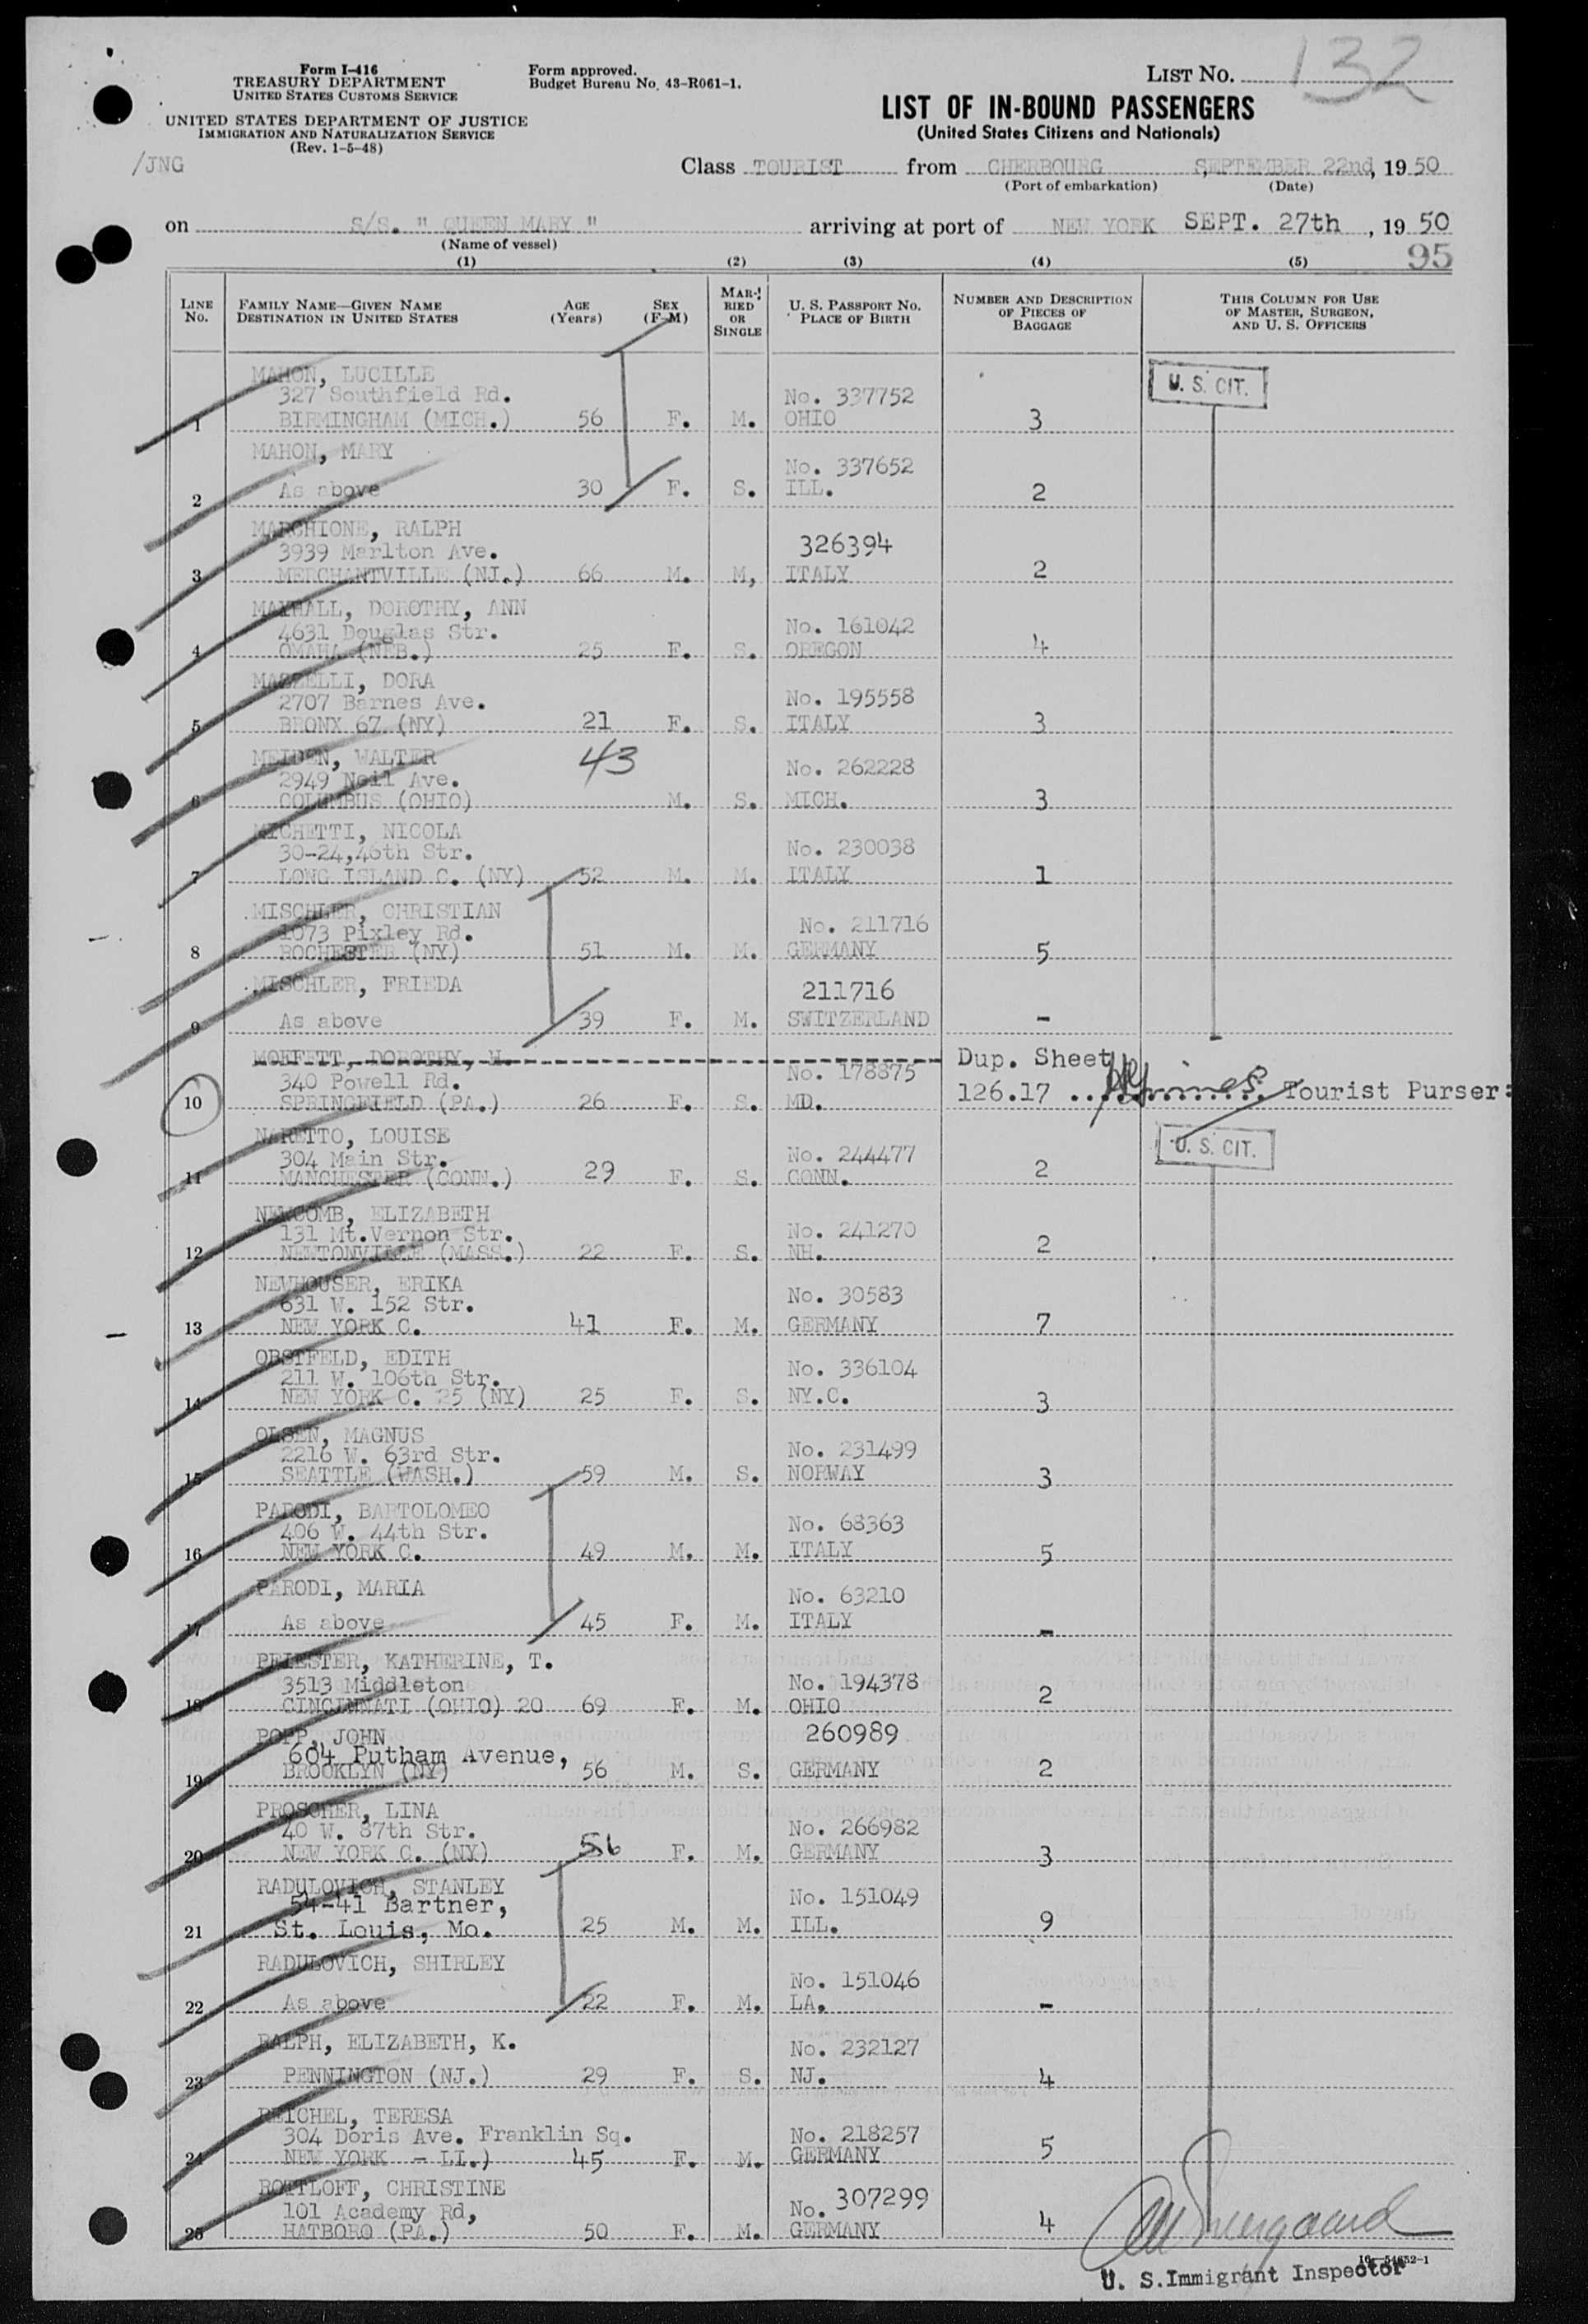 LIST NO. 132
Form I-416
TREASURY DEPARTMENT
UNITED STATES CUSTOMS SERVICE
Form approved.
Budget Bureau No. 43-R061-1.
LIST OF IN-BOUND PASSENGERS
(United States Citizens and Nationals)
UNITED STATES DEPARTMENT OF JUSTICE
IMMIGRATION AND NATURALIZATION SERVICE
(Rev. 1-5-48)
/JNG
Class TOURIST from CHERBOURG SEPTEMBER 22nd, 19 50
(Port of embarkation) (Date)
on S/S. " QUEEN MARY " arriving at port of NEW YORK SEPT. 27th, 19 50
(Name of vessel)
95
(1) (2) (3) (4) (5)
LINE No. FAMILY NAME—GIVEN NAME DESTINATION IN UNITED STATES AGE (Years) SEX (F-M) MARRIED OR SINGLE U. S. PASSPORT NO. PLACE OF BIRTH NUMBER AND DESCRIPTION OF PIECES OF BAGGAGE THIS COLUMN FOR USE OF MASTER, SURGEON, AND U. S. OFFICERS
MAHON, LUCILLE U. S. CIT.
327 Southfield Rd. No. 337752
1 BIRMINGHAM (MICH.) 56 F. M. OHIO 3
MAHON, MARY No. 337652
2 As above 30 F. S. ILL. 2
MARCHIONE, RALPH
3939 Marlton Ave. 326394
3 MERCHANTVILLE (NJ.) 66 M. M, ITALY 2
MAYHALL, DOROTHY, ANN
4631 Douglas Str. No. 161042
4 OMAHA (NEB.) 25 F. S. OREGON 4
MAZZELLI, DORA
2707 Barnes Ave. No. 195558
5 BRONX 67 (NY) 21 F. S. ITALY 3
MEIDEN, WALTER 43
2949 Neil Ave. No. 262228
6 COLUMBUS (OHIO) M. S. MICH. 3
MICHETTI, NICOLA
30-24,46th Str. No. 230038
7 LONG ISLAND C. (NY) 52 M. M. ITALY 1
MISCHLER, CHRISTIAN
1073 Pixley Rd. No. 211716
8 ROCHESTER (NY) 51 M. M. GERMANY 5
MISCHLER, FRIEDA 211716
9 As above 39 F. M. SWITZERLAND -
MOFFETT, DOROTHY, H. Dup. Sheet
340 Powell Rd. No. 178875 126.17 Tourist Purser:
10 SPRINGFIELD (PA.) 26 F. S. MD.
NARETTO, LOUISE U. S. CIT.
304 Main Str. No. 244477
11 MANCHESTER (CONN.) 29 F. S. CONN. 2
NEWCOMB, ELIZABETH
131 Mt.Vernon Str. No. 241270
12 NEWTONVILLE (MASS.) 22 F. S. NH. 2
NEUHOUSER, ERIKA
631 W. 152 Str. No. 30583
13 NEW YORK C. 41 F. M. GERMANY 7
OBSTFELD, EDITH
211 W. 106th Str. No. 336104
14 NEW YORK C. 25 (NY) 25 F. S. NY.C. 3
OLSEN, MAGNUS
2216 W. 63rd Str. No. 231499
15 SEATTLE (WASH.) 59 M. S. NORWAY 3
PARODI, BARTOLOMEO
406 W. 44th Str. No. 68363
16 NEW YORK C. 49 M. M. ITALY 5
PARODI, MARIA No. 63210
17 As above 45 F. M. ITALY -
PRIESTER, KATHERINE, T.
3513 Middleton No. 194378
18 CINCINNATI (OHIO) 20 69 F. M. OHIO 2
POPP, JOHN 260989
604 Putham Avenue,
19 BROOKLYN (NY) 56 M. S. GERMANY 2
PROSCHER, LINA
40 W. 87th Str. No. 266982
20 NEW YORK C. (NY) 56 F. M. GERMANY 3
RADULOVICH, STANLEY
54-41 Bartner, No. 151049
21 St. Louis, Mo. 25 M. M. ILL. 9
RADULOVICH, SHIRLEY No. 151046
22 As above 22 F. M. LA. -
RALPH, ELIZABETH, K. No. 232127
23 PENNINGTON (NJ.) 29 F. S. NJ. 4
REICHEL, TERESA
304 Doris Ave. Franklin Sq. No. 218257
24 NEW YORK - LI.) 45 F. M. GERMANY 5
ROTTLOFF, CHRISTINE
101 Academy Rd, No. 307299
25 HATBORO (PA.) 50 F. M. GERMANY 4
U. S. Immigrant Inspector